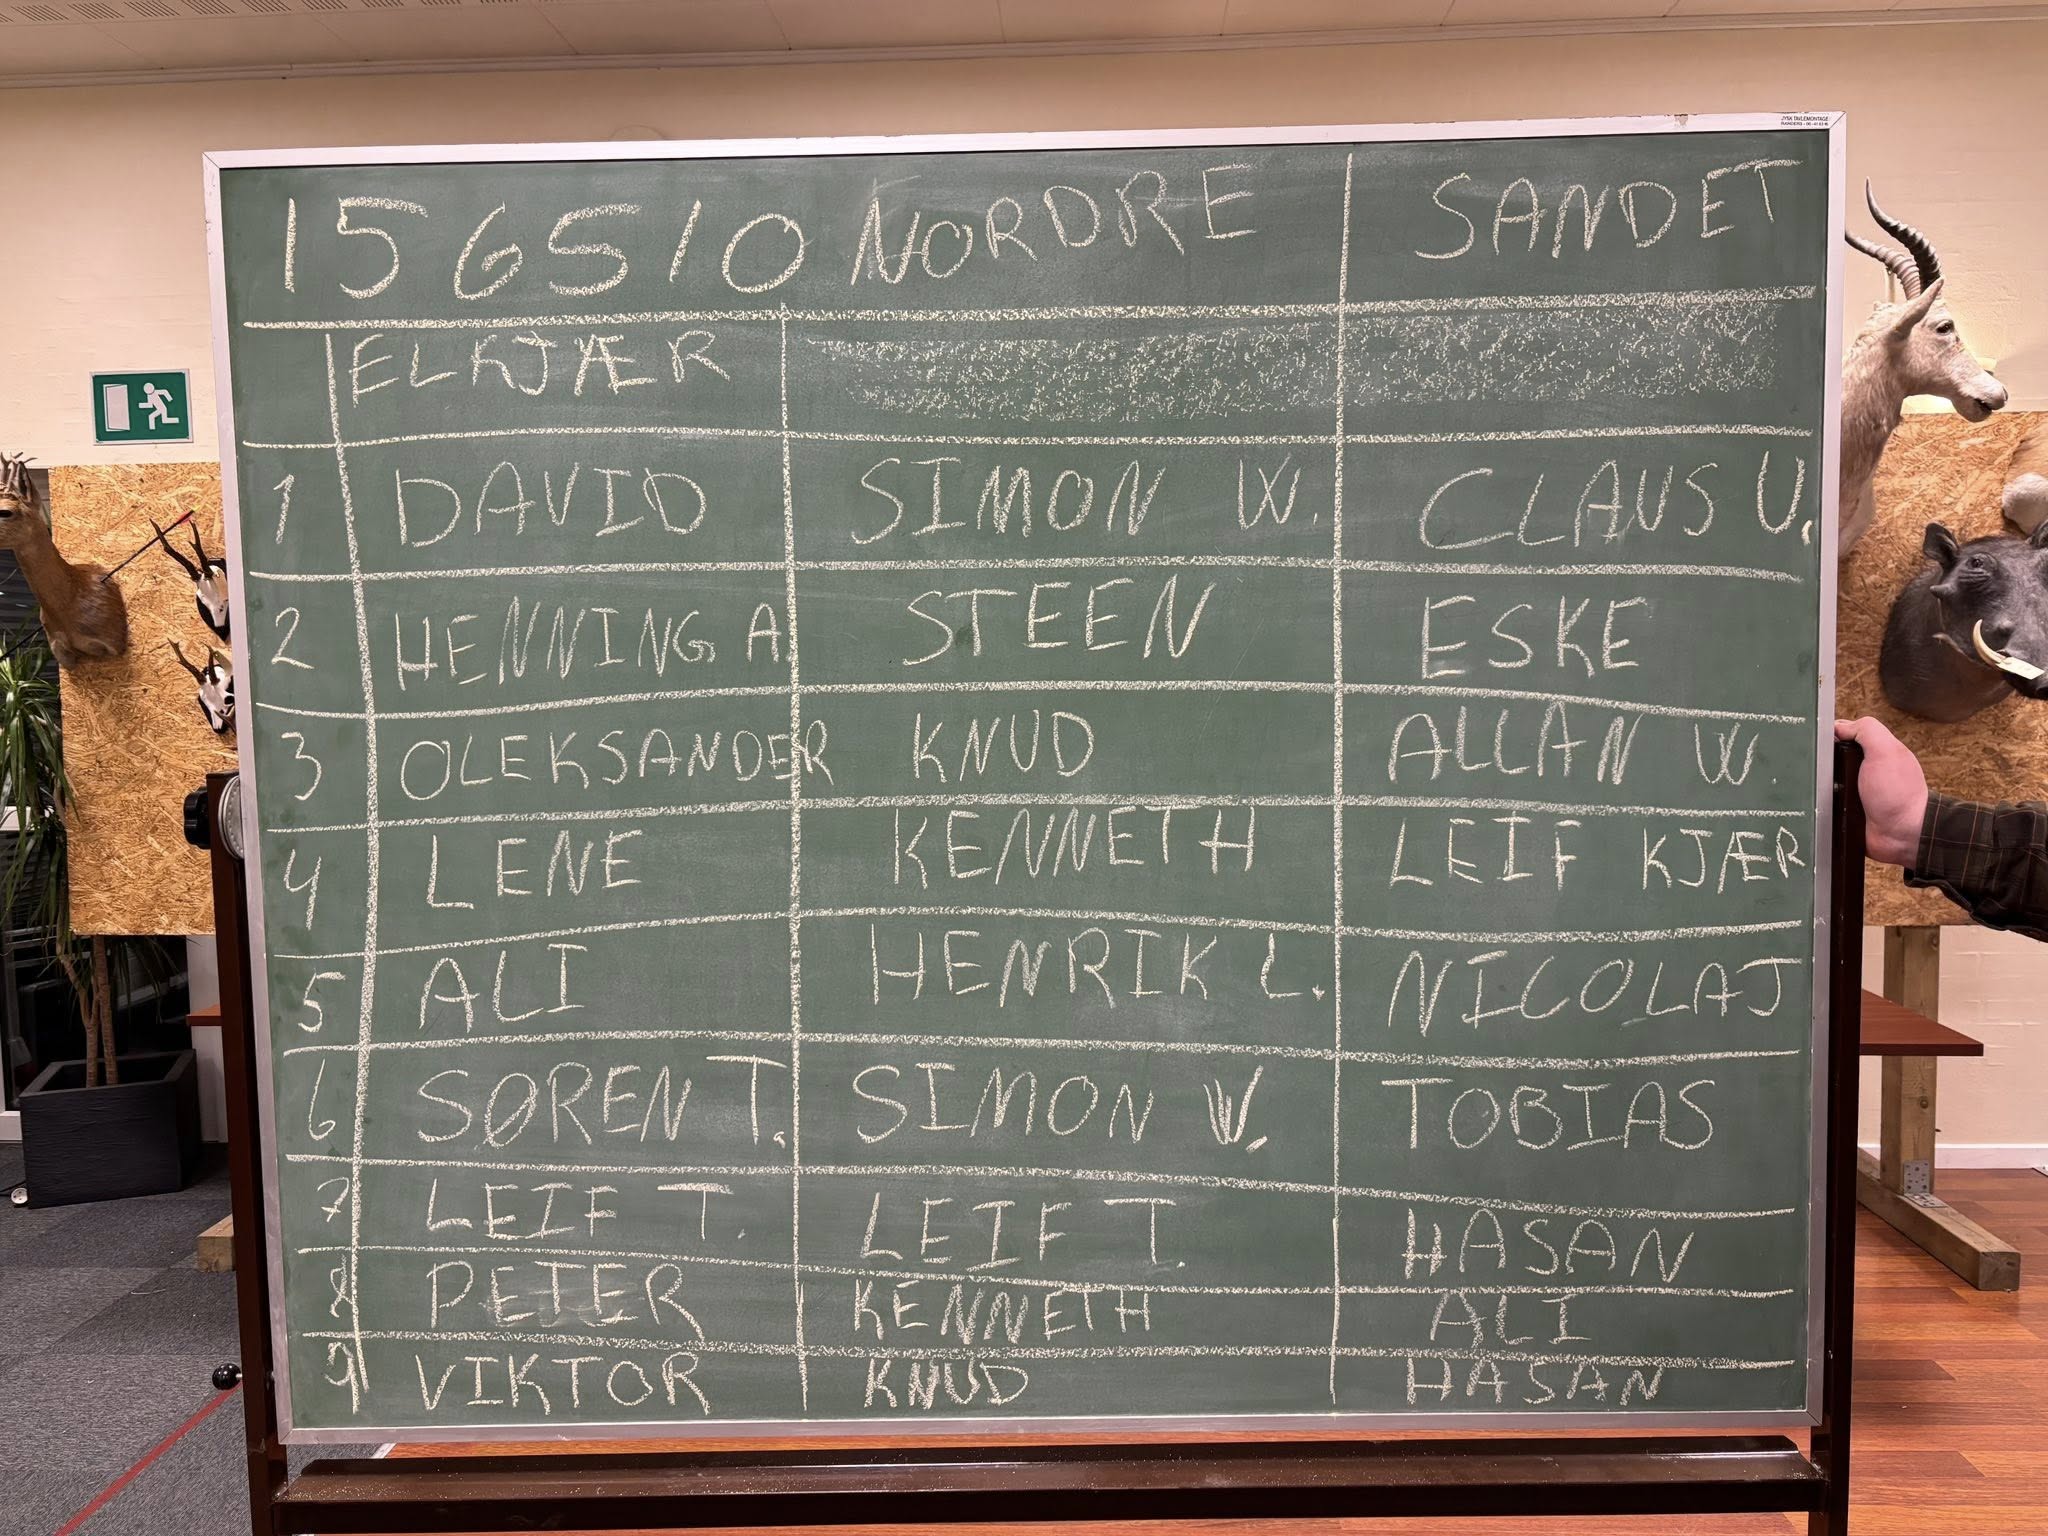 JYSK TAVLEMONTAGE
156510 NORDRE SANDET
ELKJÆR
1 DAVID SIMON W. CLAUS U.
2 HENNING A. STEEN ESKE
3 OLEKSANDER KNUD ALLAN W.
4 LENE KENNETH LEIF KJÆR
5 ALI HENRIK L. NICOLAJ
6 SØREN T. SIMON W. TOBIAS
7 LEIF T. LEIF T. HASAN
8 PETER KENNETH ALI
9 VIKTOR KNUD HASAN